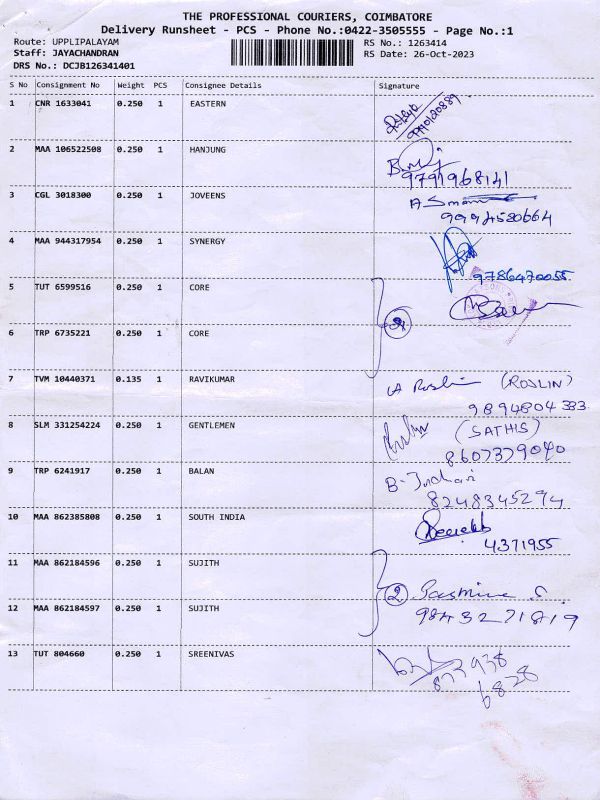 THE PROFESSIONAL COURIERS, COIMBATORE
Delivery Runsheet - PCS - Phone No.:0422-3505555 - Page No.:1
Route: UPPLIPALAYAM RS No.: 1263414
Staff: JAYACHANDRAN RS Date: 26-Oct-2023
DRS No.: DCJB126341401
S No Consignment No Weight PCS Consignee Details Signature
1 CNR 1633041 0.250 1 EASTERN
2 MAA 106522508 0.250 1 HANJUNG
9791968141
3 CGL 3018300 0.250 1 JOVEENS
9994580664
4 MAA 944317954 0.250 1 SYNERGY
9786470055
5 TUT 6599516 0.250 1 CORE
6 TRP 6735221 0.250 1 CORE
7 TVM 10440371 0.135 1 RAVIKUMAR (ROSLIN)
9894804333
8 SLM 331254224 0.250 1 GENTLEMEN (SATHIS)
8607379040
9 TRP 6241917 0.250 1 BALAN
8248345294
10 MAA 862385808 0.250 1 SOUTH INDIA
4371955
11 MAA 862184596 0.250 1 SUJITH
2 Jasmine S.
12 MAA 862184597 0.250 1 SUJITH
9843271819
13 TUT 804660 0.250 1 SREENIVAS
6828